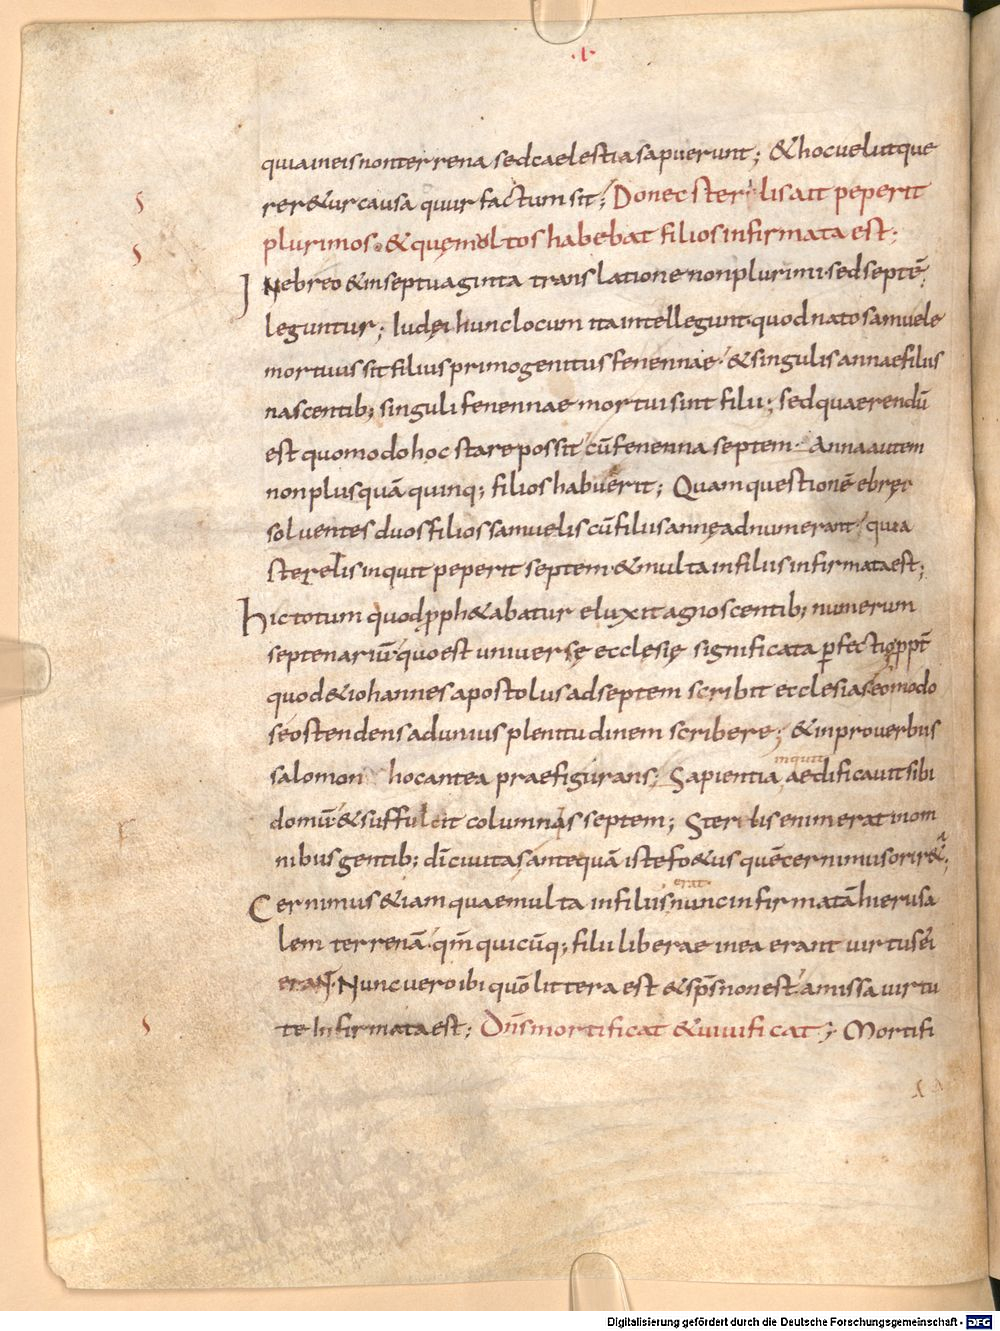 ·I·
quia in eis non terrena sed caelestia sapuerunt; & hoc uelut que
rer&ur causa quur factum sit; Donec sterilis ait peperit
plurimos. & quę multos habebat filios infirmata est;
IN ebreo & in septuaginta translatione non plurimi sed septē
leguntur; Iudęi hunc locum ita intellegunt quod nato samuele
mortuus sit filius primogenitus fenennae & singulis annae filiis
nascentib; singuli fenennae mortui sint filii; sed quaerendū
est quomodo hoc stare possit cū fenenna septem· Anna autem
non plus quā quinq; filios habuerit; Quam questionē ebręi
soluentes duos filios samuelis cū filiis annę adnumerant quia
sterelis inquit peperit septem & multa in filiis infirmata est;
Hic totum quod pph&abatur eluxit agnoscentib; numerum
septenariū quo est uniuersę ecclesię significata pfectio ppt
quod & iohannes apostolus ad septem scribit ecclesias eo modo
se ostendens ad unius plenitudinem scribere; & in prouerbiis
salomon hoc antea praefigurans; Sapientia aedificauit sibi
inquit
domū & suffulcit columnas septem; Sterilis enim erat in om
nibus gentib; dī ciuitas antequā iste fo&us quē cernimus orir&;
Cernimus & iam quae multa in filiis nunc infirmatā hierusa
erat
lem terrenā· qm̄ quicūq; filii liberae in ea erant uirtus ei
erant· Nunc uero ibi quō littera est & sp̄s non est amissa uirtu
te Infirmata est; Dn̄s mortificat & uiuificat; Mortifi
Digitalisierung gefördert durch die Deutsche Forschungsgemeinschaft - DFG